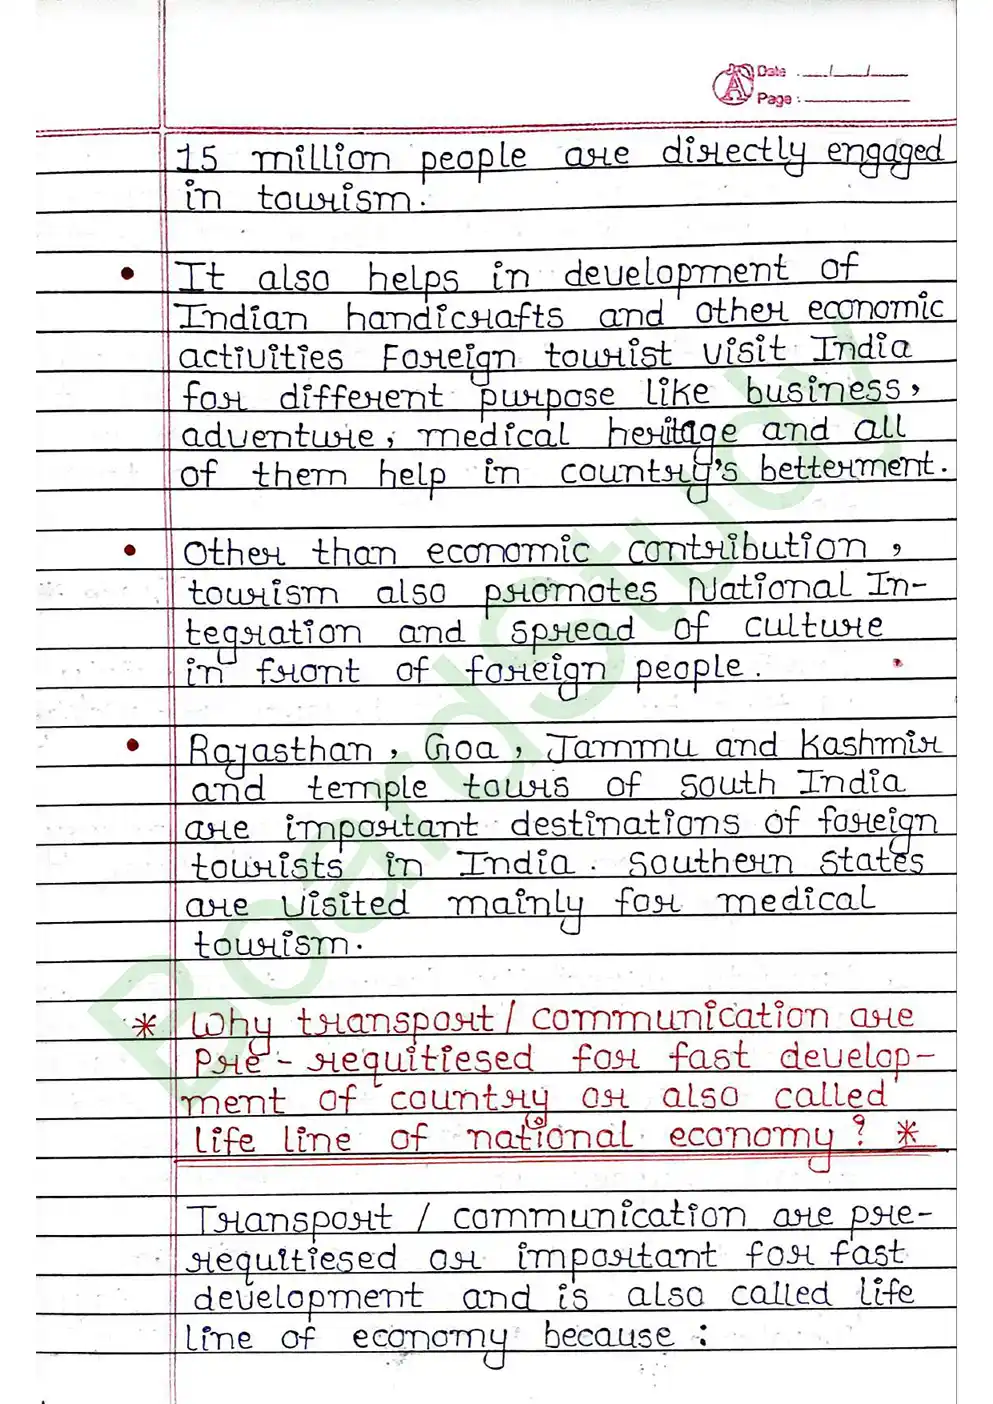 Date : __/__/__
Page :
15 million people are directly engaged
in tourism.
• It also helps in development of
Indian handicrafts and other economic
activities Foreign tourist visit India
for different purpose like business,
adventure, medical heritage and all
of them help in country's betterment.
• Other than economic contribution,
tourism also promotes National In-
tegration and spread of culture
in front of foreign people.
• Rajasthan, Goa, Jammu and Kashmir
and temple tours of south India
are important destinations of foreign
tourists in India. Southern States
are visited mainly for medical
tourism.
* Why transport / communication are
Pre-requitiesed for fast develop-
ment of country or also called
life line of national economy? *
Transport / communication are pre-
requitiesed or important for fast
development and is also called life
line of economy because :
BoardStudy